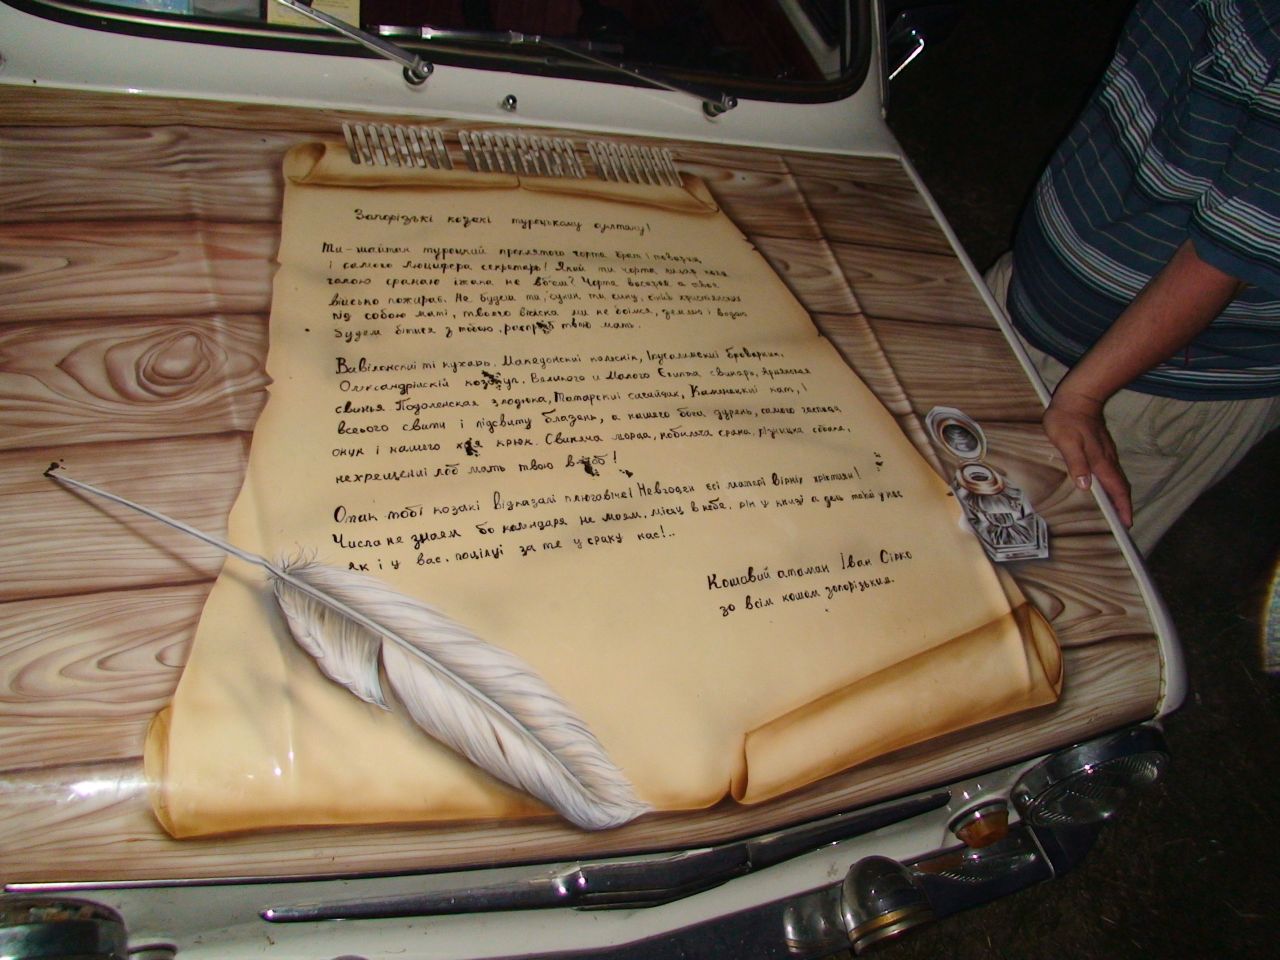 Запорізькі козакі турецькому султану!
Ти-шайтан турецкий проклятого чорта брат і товариш,
і самого люцифера секретарь! Який ти чорта лицар кола
голою сракаю їжака не вбєєш? Чорта висязає а твое
військо пожирає. Не будеш ти, сукин ти сину, синів християнских
під собою маті, твойго війска ми не боїмся, землею і водою
будем бітися з тобою, распро твою мать.
Вавілонский ті кухарь, Македонский колеснік, Ієрусалимский броварник,
Олександрійскій коз уп, Великого и Малого Єгипта свинарь, Армянская
свинья Подолянская злодюка, Татарский сагайдак, Каменецкий кат, і
всього свиту і підсвиту блазень, а нашего бога дурень, самого господа
онук і нашего х я крюк. Свиняча морда, кобиляча срака, різницка собака,
нехрещений лоб мать твою в б!
Отак тобі козакі відказалі плюгавіче! Невгоден єсі матері вірніх хрістиян!
Числа не знаем бо календаря не маем, місяц в небе, рік у книзі а день такій у нас
як і у вас, поцілуі за те у сраку нас!..
Кошовий атаман Іван Сірко
зо всім кошом запорізьким.